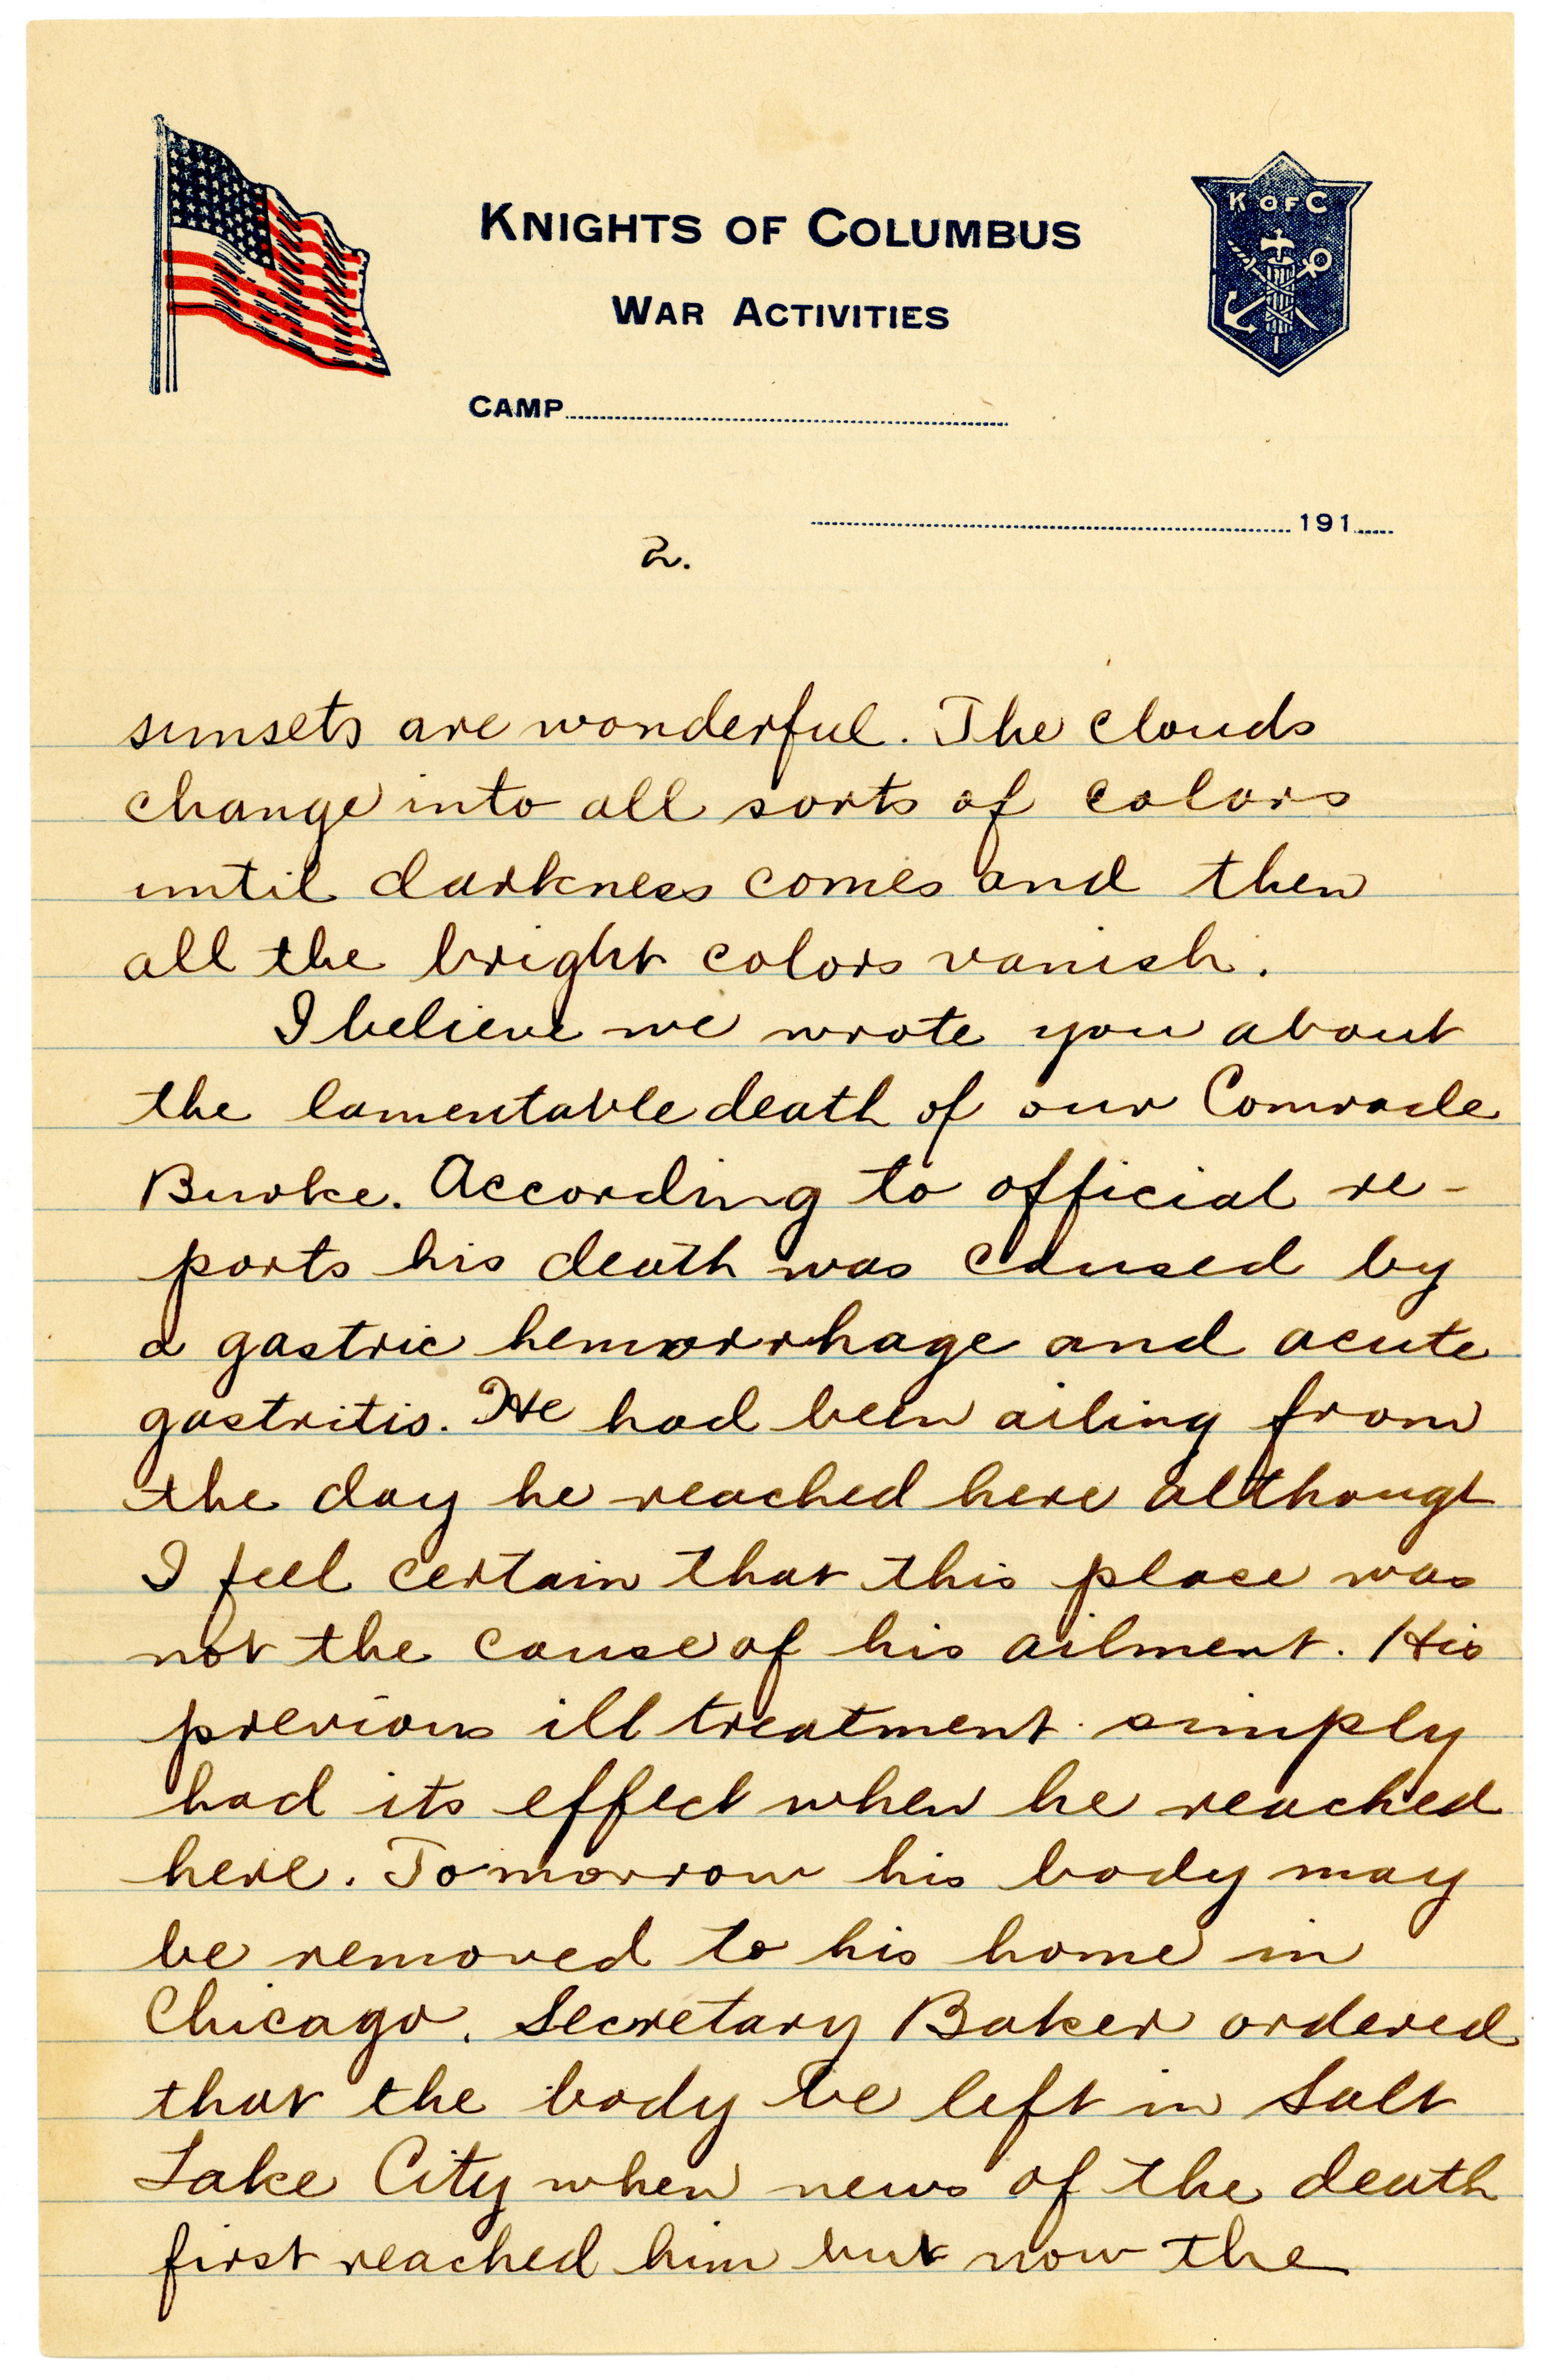 KNIGHTS OF COLUMBUS
WAR ACTIVITIES
K OF C
CAMP
191
2.
sunsets are wonderful. The clouds
change into all sorts of colors
until darkness comes and then
all the bright colors vanish.
I believe we wrote you about
the lamentable death of our Comrade
Burke. According to official re-
ports his death was caused by
a gastric hemorrhage and acute
gastritis. He had been ailing from
the day he reached here although
I feel certain that this place was
not the cause of his ailment. His
previous ill treatment simply
had its effect when he reached
here. Tomorrow his body may
be removed to his home in
Chicago. Secretary Baker ordered
that the body be left in Salt
Lake City when news of the death
first reached him but now the